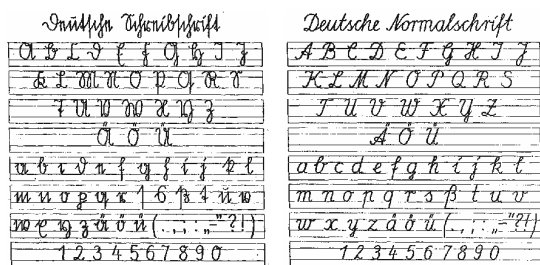 Deutsche Schreibschrift
A B C D E F G H I J
K L M N O P Q R S
T U V W X Y Z
Ä Ö Ü
a b c d e f g h i j k l
m n o p q r ſ s ß t u v
w x y z ä ö ü (.,;:„-"?!)
1 2 3 4 5 6 7 8 9 0
Deutsche Normalschrift
A B C D E F G H I J
K L M N O P Q R S
T U V W X Y Z
Ä Ö Ü
a b c d e f g h i j k l
m n o p q r s ß t u v
w x y z ä ö ü (.,;:„-"?!)
1 2 3 4 5 6 7 8 9 0